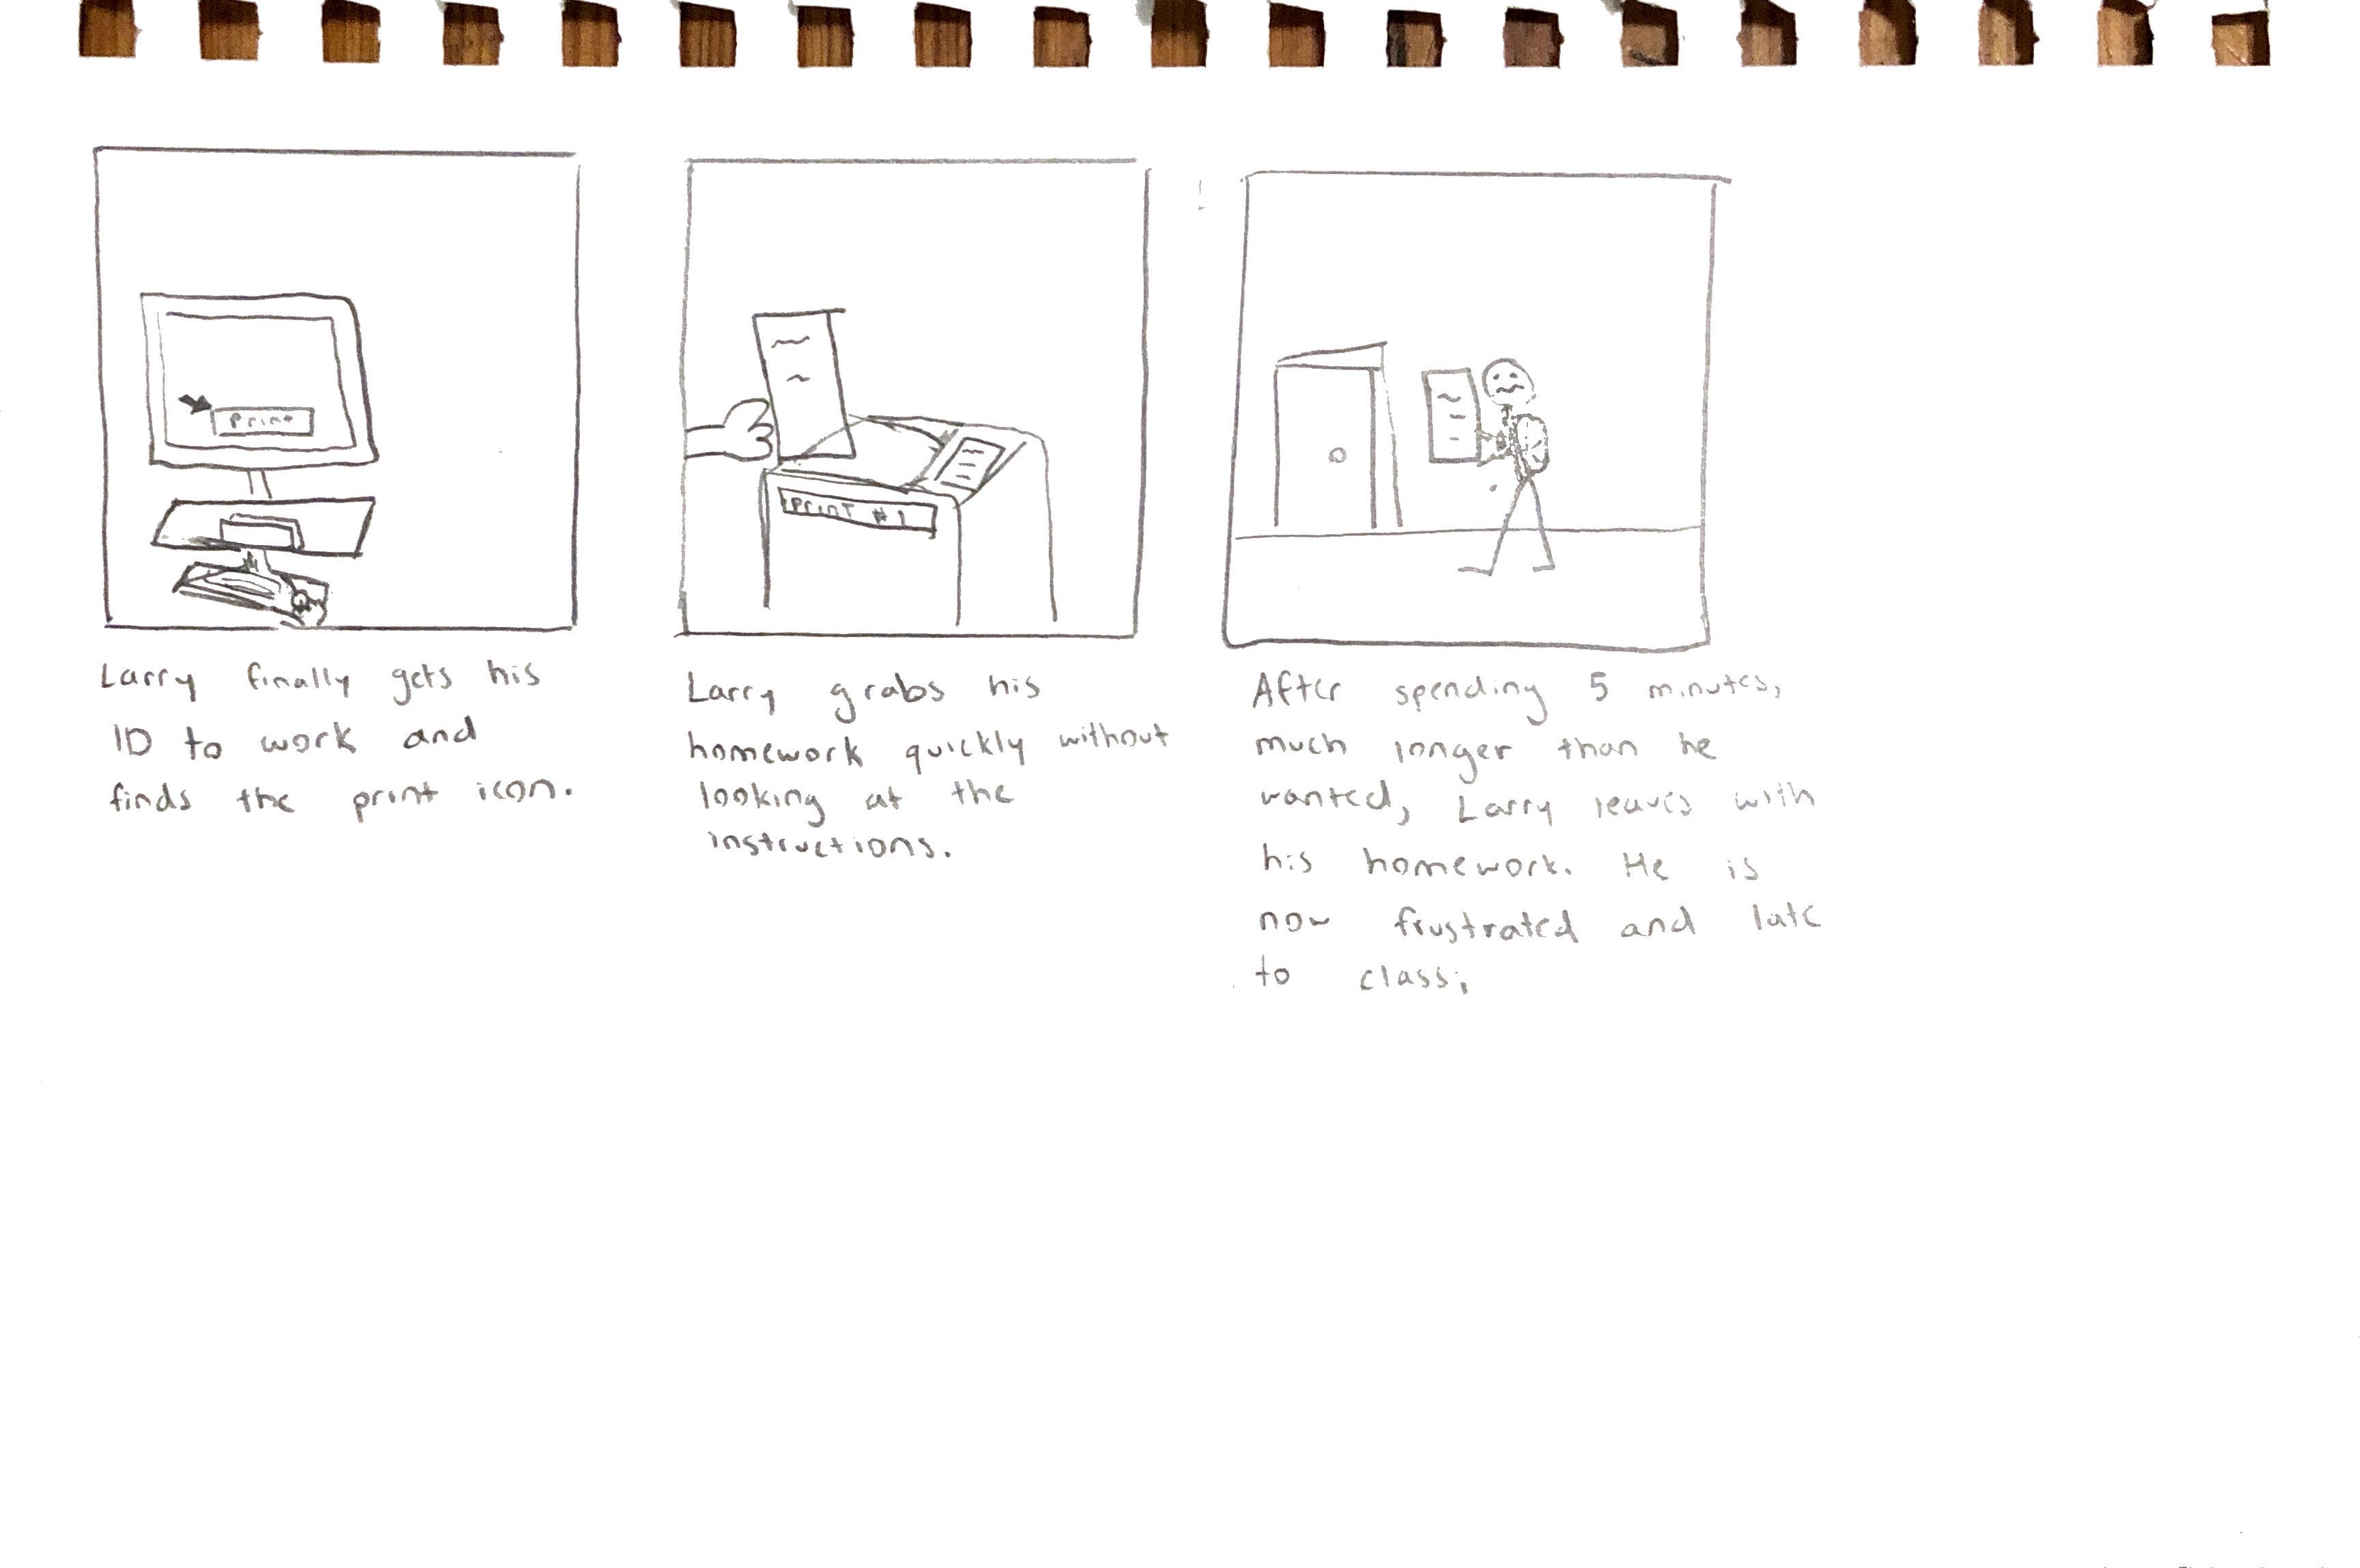 Print
Larry finally gets his
ID to work and
finds the print icon.
Print #1
Larry grabs his
homework quickly without
looking at the
instructions.
After spending 5 minutes,
much longer than he
wanted, Larry leaves with
his homework. He is
now frustrated and late
to class;